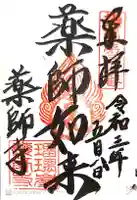 奉拝
令和三年
五月
薬師如来
薬師寺